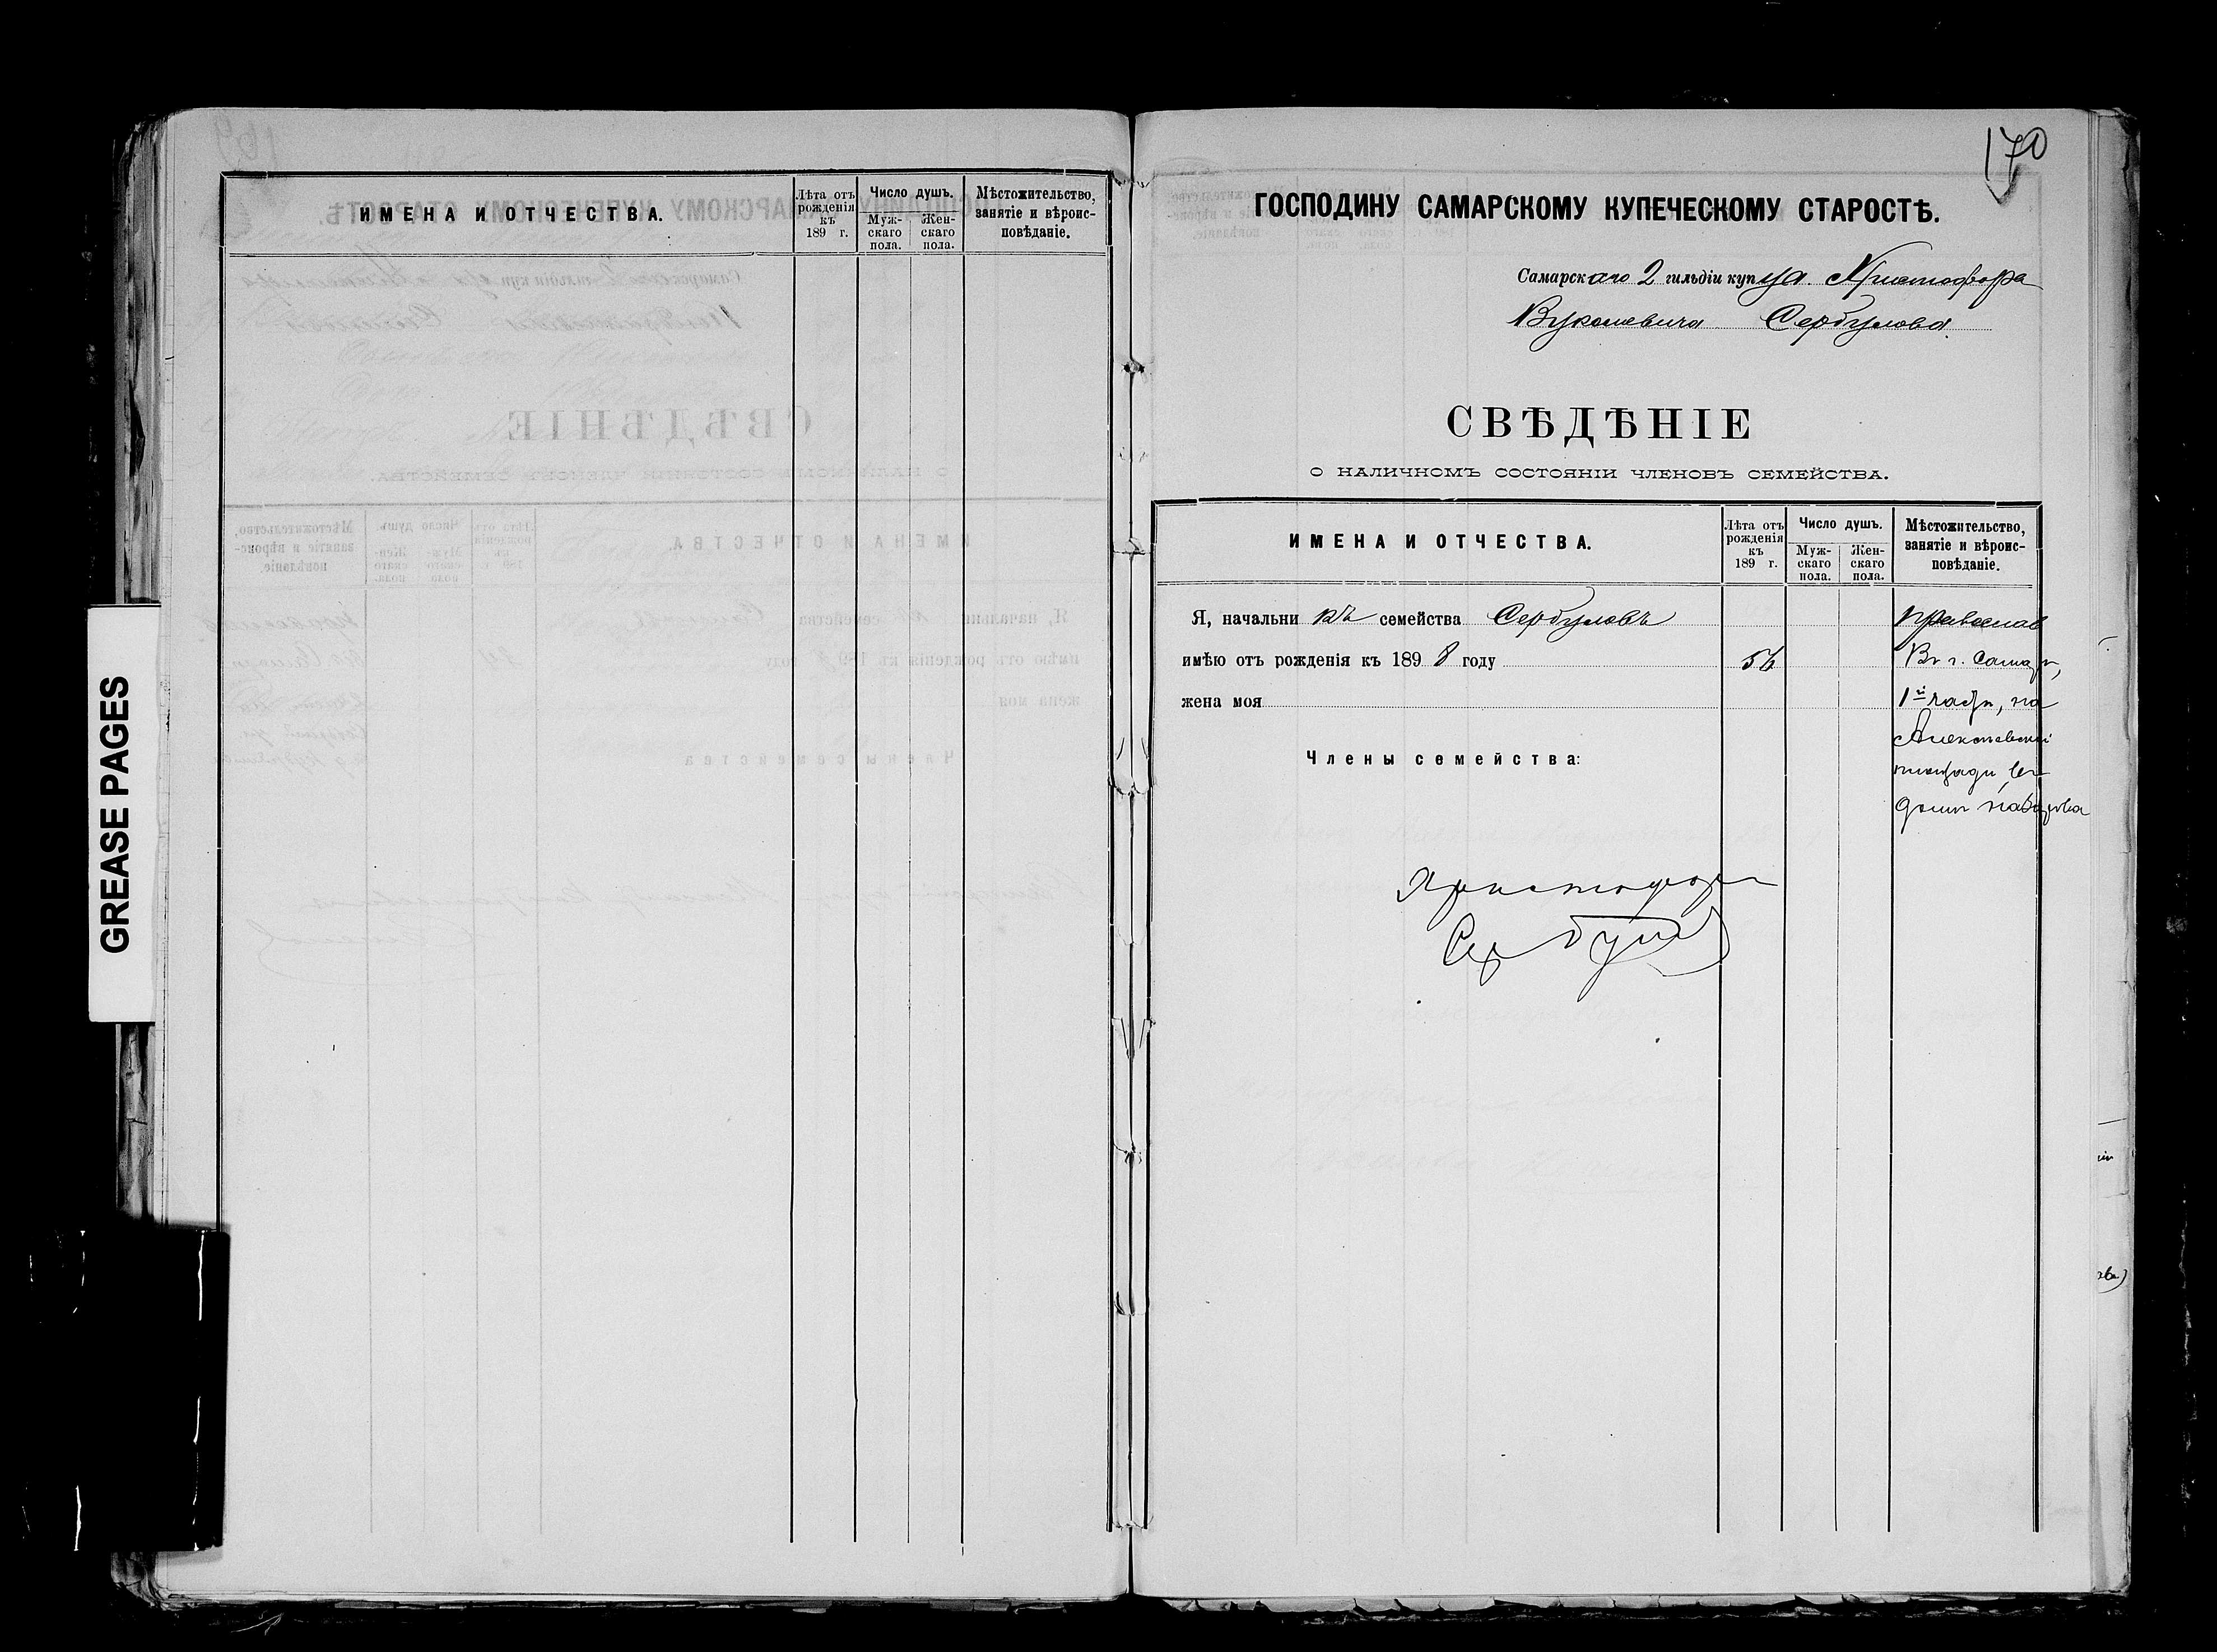 ИМЕНА И ОТЧЕСТВА.
Лѣта отъ рожденія къ 189 г.
Число душъ.
Муж-скаго пола.
Жен-скаго пола.
Мѣстожительство, занятіе и вѣроис-повѣданіе.
GREASE PAGES
170
ГОСПОДИНУ САМАРСКОМУ КУПЕЧЕСКОМУ СТАРОСТѢ.
Самарскаго 2 гильдіи купца Христофора
Вуколовича Сербулова.
СВѢДѢНІЕ
О НАЛИЧНОМЪ СОСТОЯНІИ ЧЛЕНОВЪ СЕМЕЙСТВА.
ИМЕНА И ОТЧЕСТВА.
Лѣта отъ рожденія къ 189 г.
Число душъ.
Муж-скаго пола.
Жен-скаго пола.
Мѣстожительство, занятіе и вѣроис-повѣданіе.
Я, начальникъ семейства Сербуловъ православ
имѣю отъ рожденія къ 1898 году 56 Въ г. Самарѣ,
жена моя 1й части, на
Алексѣевской
Члены семейства:
площади въ
домѣ
Христофоръ
Сербуловъ